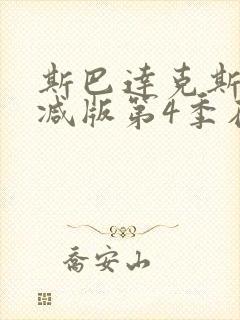 斯巴达克斯
减版第4季在
乔安山